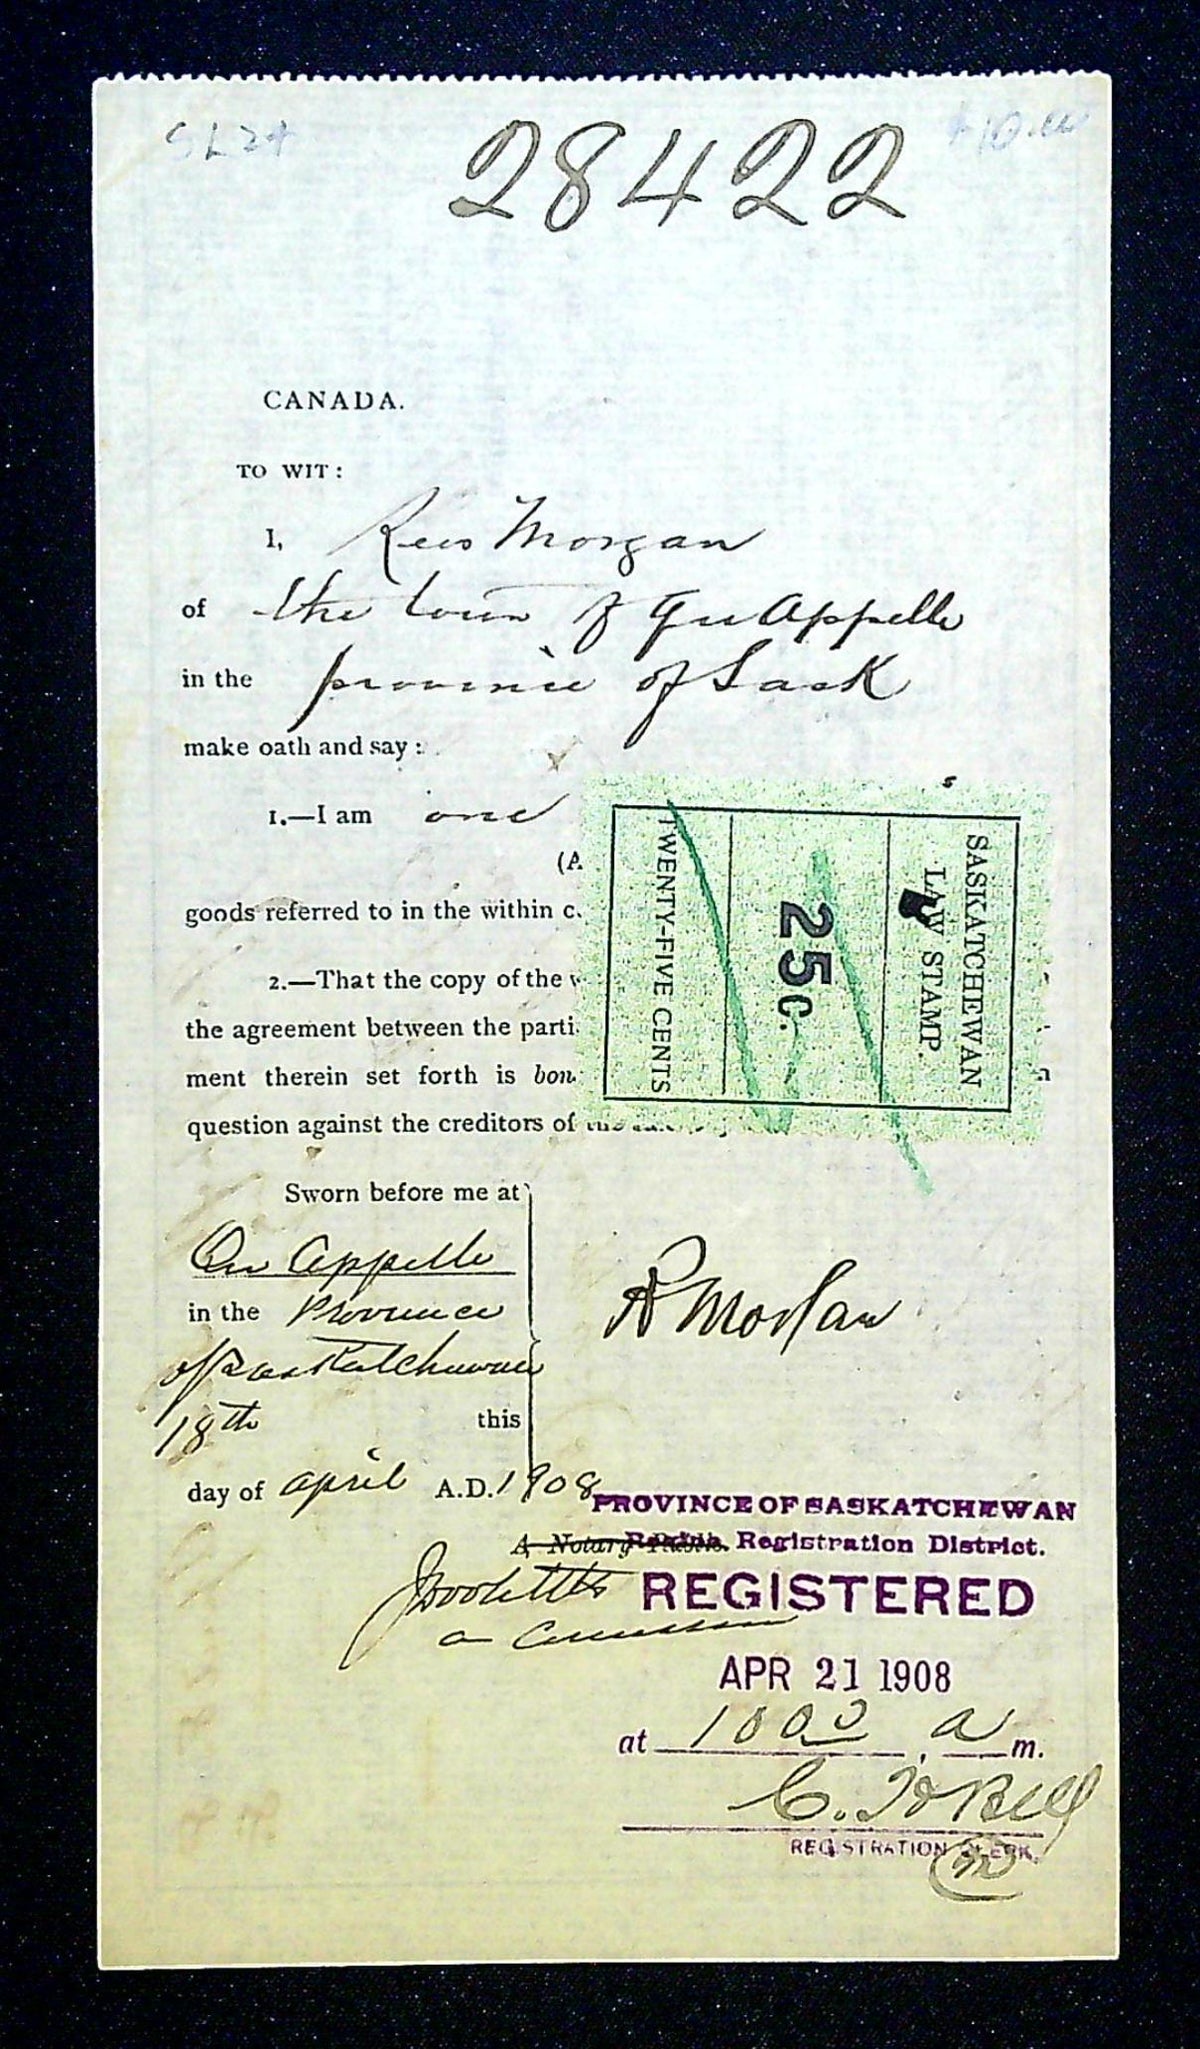 SL24
$10.00
28422
CANADA.
TO WIT:
I, Rees Morgan
of the town of Qu Appelle
in the province of Sask
make oath and say:
1.—I am one
(A
goods referred to in the within c
2.—That the copy of the
the agreement between the parti
ment therein set forth is bon
question against the creditors of
SASKATCHEWAN
LAW STAMP.
25c.
TWENTY-FIVE CENTS
Sworn before me at
Qu Appelle
in the Province
of Saskatchewan
18th this
day of april A.D. 1908
R Morgan
A Notary Public.
a
PROVINCE OF SASKATCHEWAN
Regina Registration District.
REGISTERED
APR 21 1908
at 10 00 a m.
REGISTRATION CLERK.